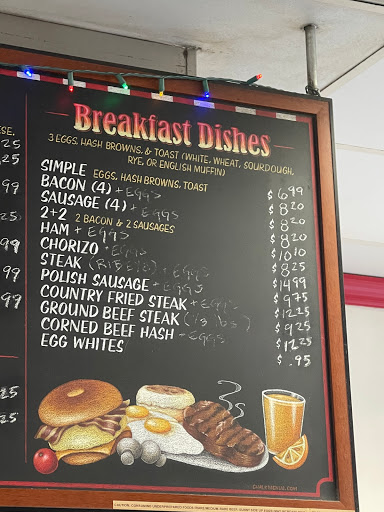 SE.
25
25
99
25
99
99
99
25
25
Breakfast Dishes
3 EGGS, HASH BROWNS, & TOAST (WHITE, WHEAT, SOURDOUGH,
RYE, OR ENGLISH MUFFIN)
SIMPLE EGGS, HASH BROWNS, TOAST $6.99
BACON (4) + EGGS $8.20
SAUSAGE (4) + EGGS $8.20
2+2 2 BACON & 2 SAUSAGES $8.20
HAM + EGGS $10.10
CHORIZO + EGGS $8.25
STEAK (RIBEYE) + EGGS $14.99
POLISH SAUSAGE + EGGS $9.75
COUNTRY FRIED STEAK + EGGS $12.25
GROUND BEEF STEAK (1/3 lbs) $9.25
CORNED BEEF HASH - EGGS $12.25
EGG WHITES $.95